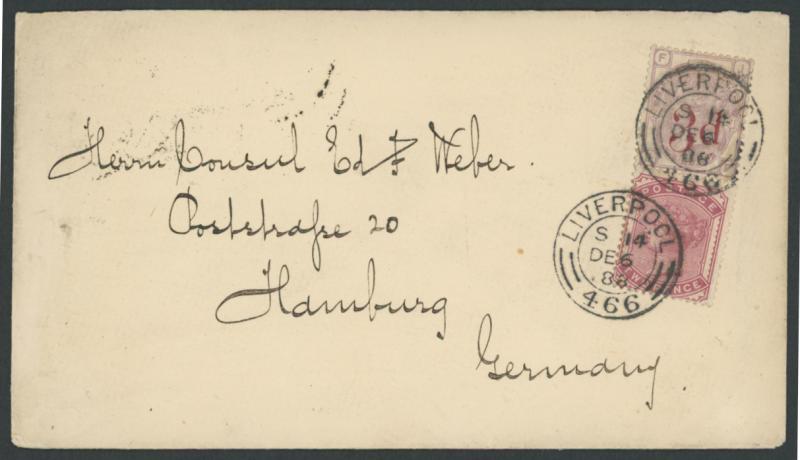 Herrn Consul Ed F Weber.
Poststraße 20
Hamburg
Germany
F I
3d
LIVERPOOL
S 14
DE 6
86
466
POSTAGE
TWOPENCE
LIVERPOOL
S 14
DE 6
86
466